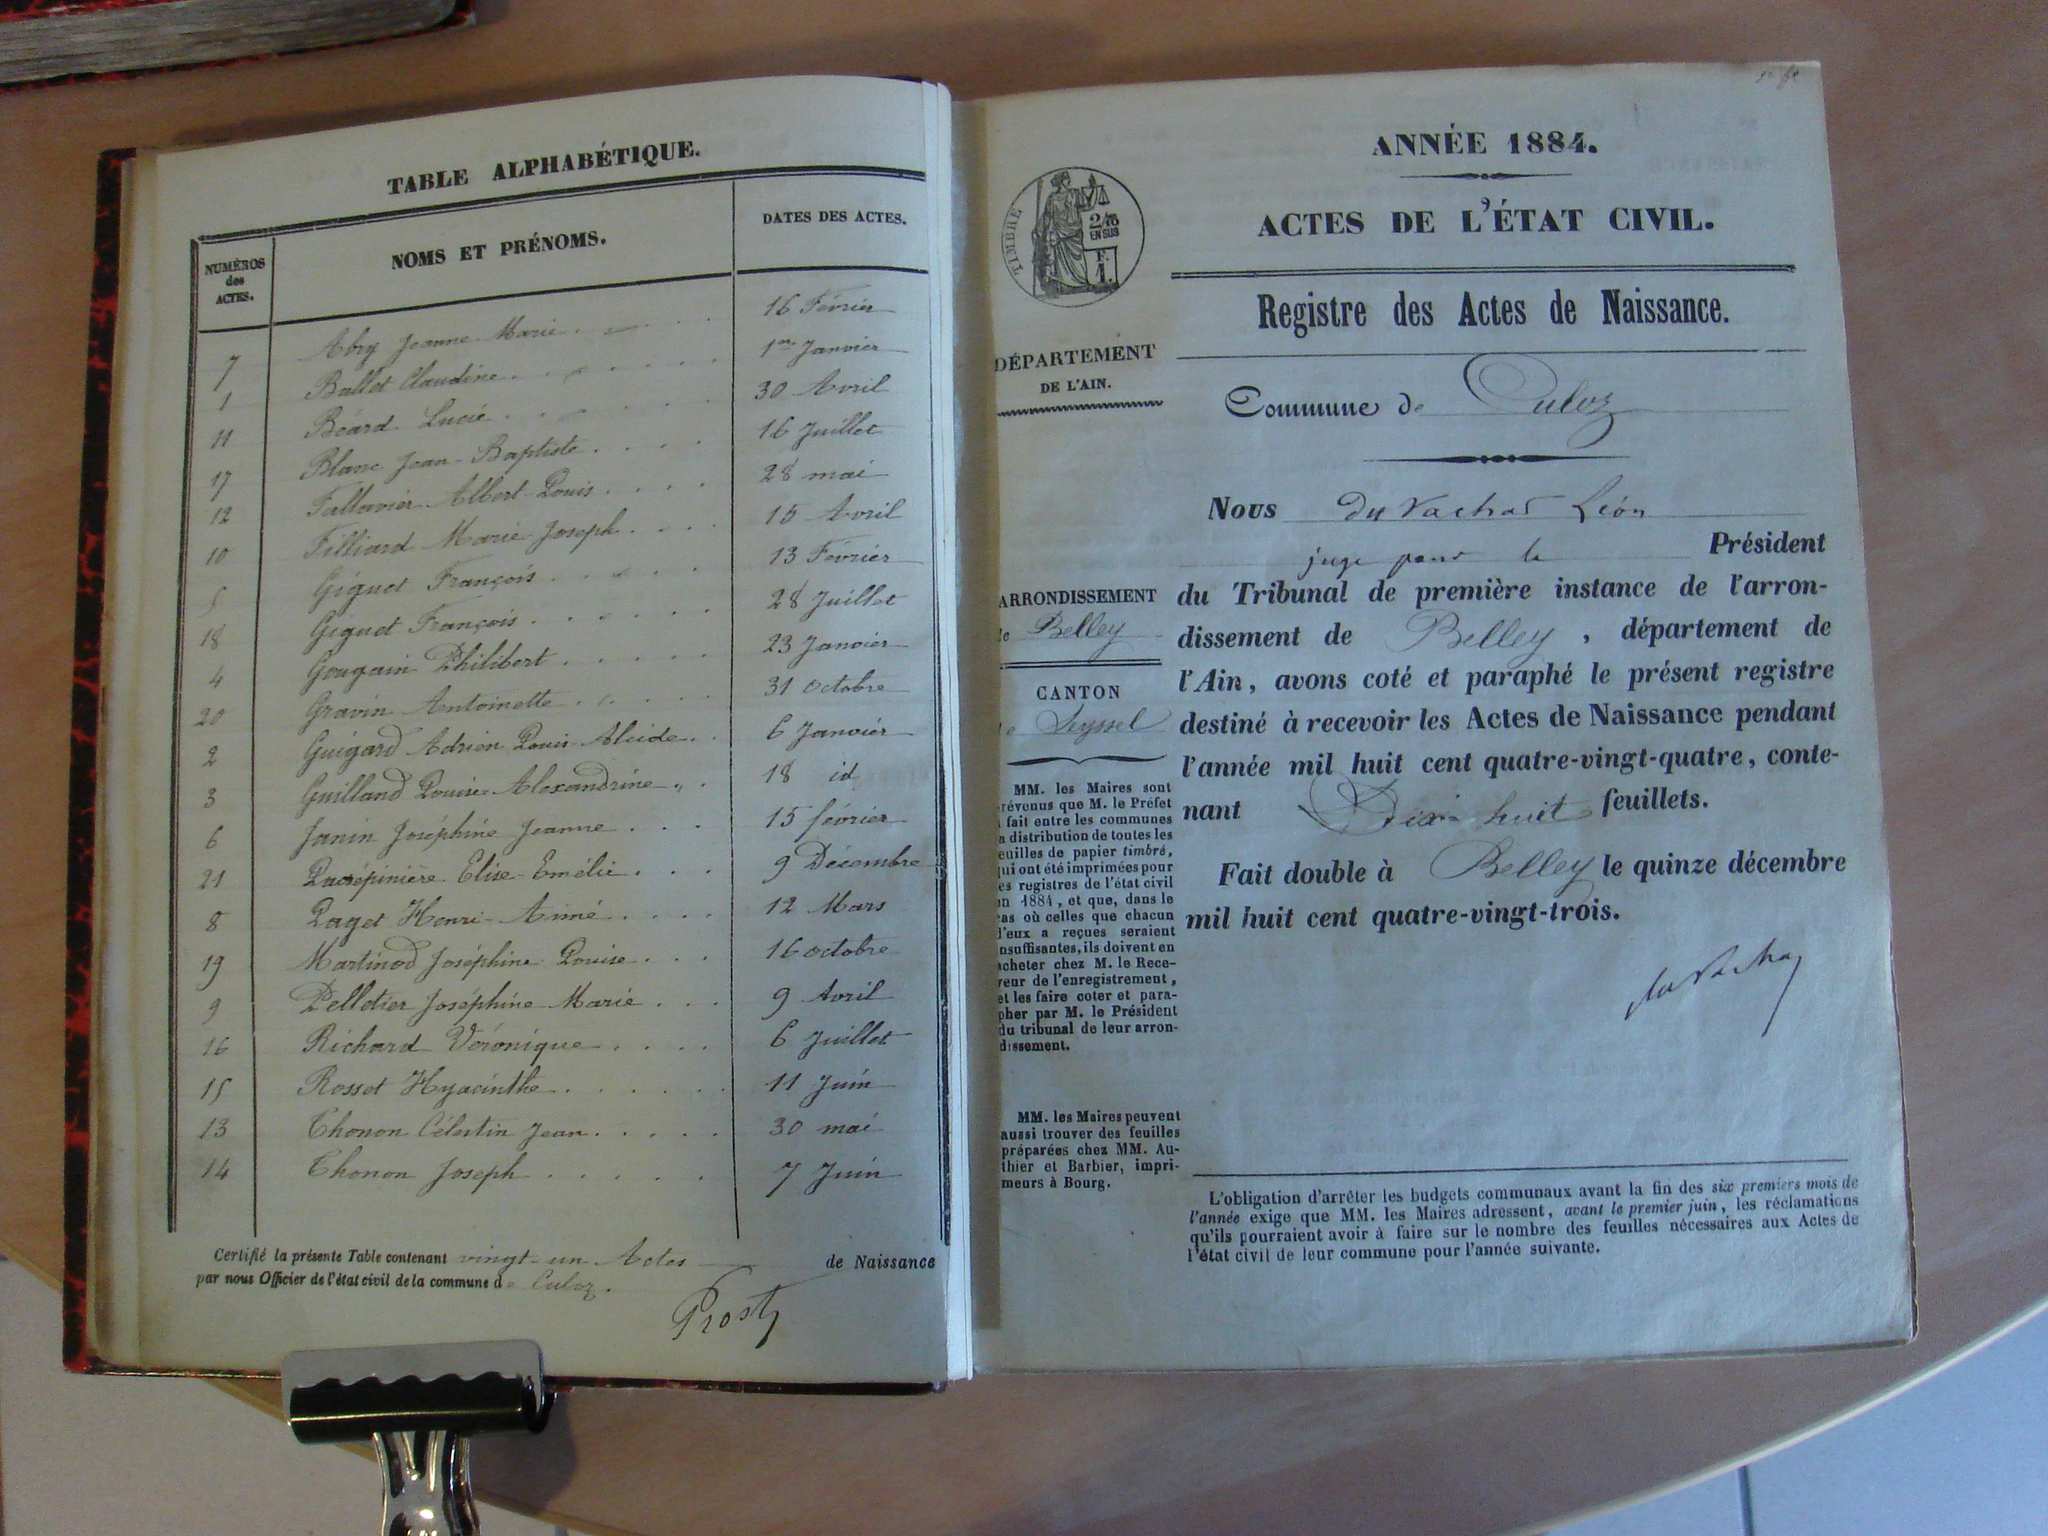 TABLE ALPHABÉTIQUE.
NUMÉROS des ACTES. NOMS ET PRÉNOMS. DATES DES ACTES.
7 Abry Jeanne Marie 16 Février
1 Ballet Claudine 1er Janvier
11 Béard Lucie 30 Avril
17 Blanc Jean-Baptiste 16 Juillet
12 Fallavier Albert Louis 28 mai
10 Filliard Marie Joseph 15 Avril
5 Giguet François 13 Février
18 Giguet François 28 Juillet
4 Gougain Philibert 23 Janvier
20 Gravin Antoinette 31 octobre
2 Guigard Adrien Louis Alcide 6 Janvier
3 Guilland Louise Alexandrine 18 id
6 Janin Joséphine Jeanne 15 février
21 Lacrépinière Elise Emélie 9 Décembre
8 Laget Henri Aimé 12 Mars
19 Martinod Joséphine Louise 16 octobre
9 Pelletier Joséphine Marie 9 Avril
16 Richard Véronique 6 Juillet
15 Rosset Hyacinthe 11 Juin
13 Thonon Célestin Jean 30 mai
14 Thonon Joseph 7 Juin
Certifié la présente Table contenant vingt-un Actes de Naissance
par nous Officier de l'état civil de la commune de Culoz.
Prost
ANNÉE 1884.
ACTES DE L'ÉTAT CIVIL.
TIMBRE
2/10
EN SUS
F.
1.
Registre des Actes de Naissance.
DÉPARTEMENT
DE L'AIN.
Commune de Culoz
Nous du Vachat Léon
juge pour le Président
du Tribunal de première instance de l'arron-
dissement de Belley, département de
l'Ain, avons coté et paraphé le présent registre
destiné à recevoir les Actes de Naissance pendant
l'année mil huit cent quatre-vingt-quatre, conte-
nant Dix huit feuillets.
Fait double à Belley le quinze décembre
mil huit cent quatre-vingt-trois.
du Vachat
ARRONDISSEMENT
de Belley
CANTON
de Seyssel
MM. les Maires sont
révenus que M. le Préfet
fait entre les communes
a distribution de toutes les
euilles de papier timbré,
qui ont été imprimées pour
es registres de l'état civil
n 1884, et que, dans le
as où celles que chacun
d'eux a reçues seraient
nsuffisantes, ils doivent en
acheter chez M. le Rece-
veur de l'enregistrement,
et les faire coter et para-
pher par M. le Président
du tribunal de leur arron-
dissement.
MM. les Maires peuvent
aussi trouver des feuilles
préparées chez MM. Au-
thier et Barbier, impri-
meurs à Bourg.
L'obligation d'arrêter les budgets communaux avant la fin des six premiers mois de
l'année exige que MM. les Maires adressent, avant le premier juin, les réclamations
qu'ils pourraient avoir à faire sur le nombre des feuilles nécessaires aux Actes de
l'état civil de leur commune pour l'année suivante.